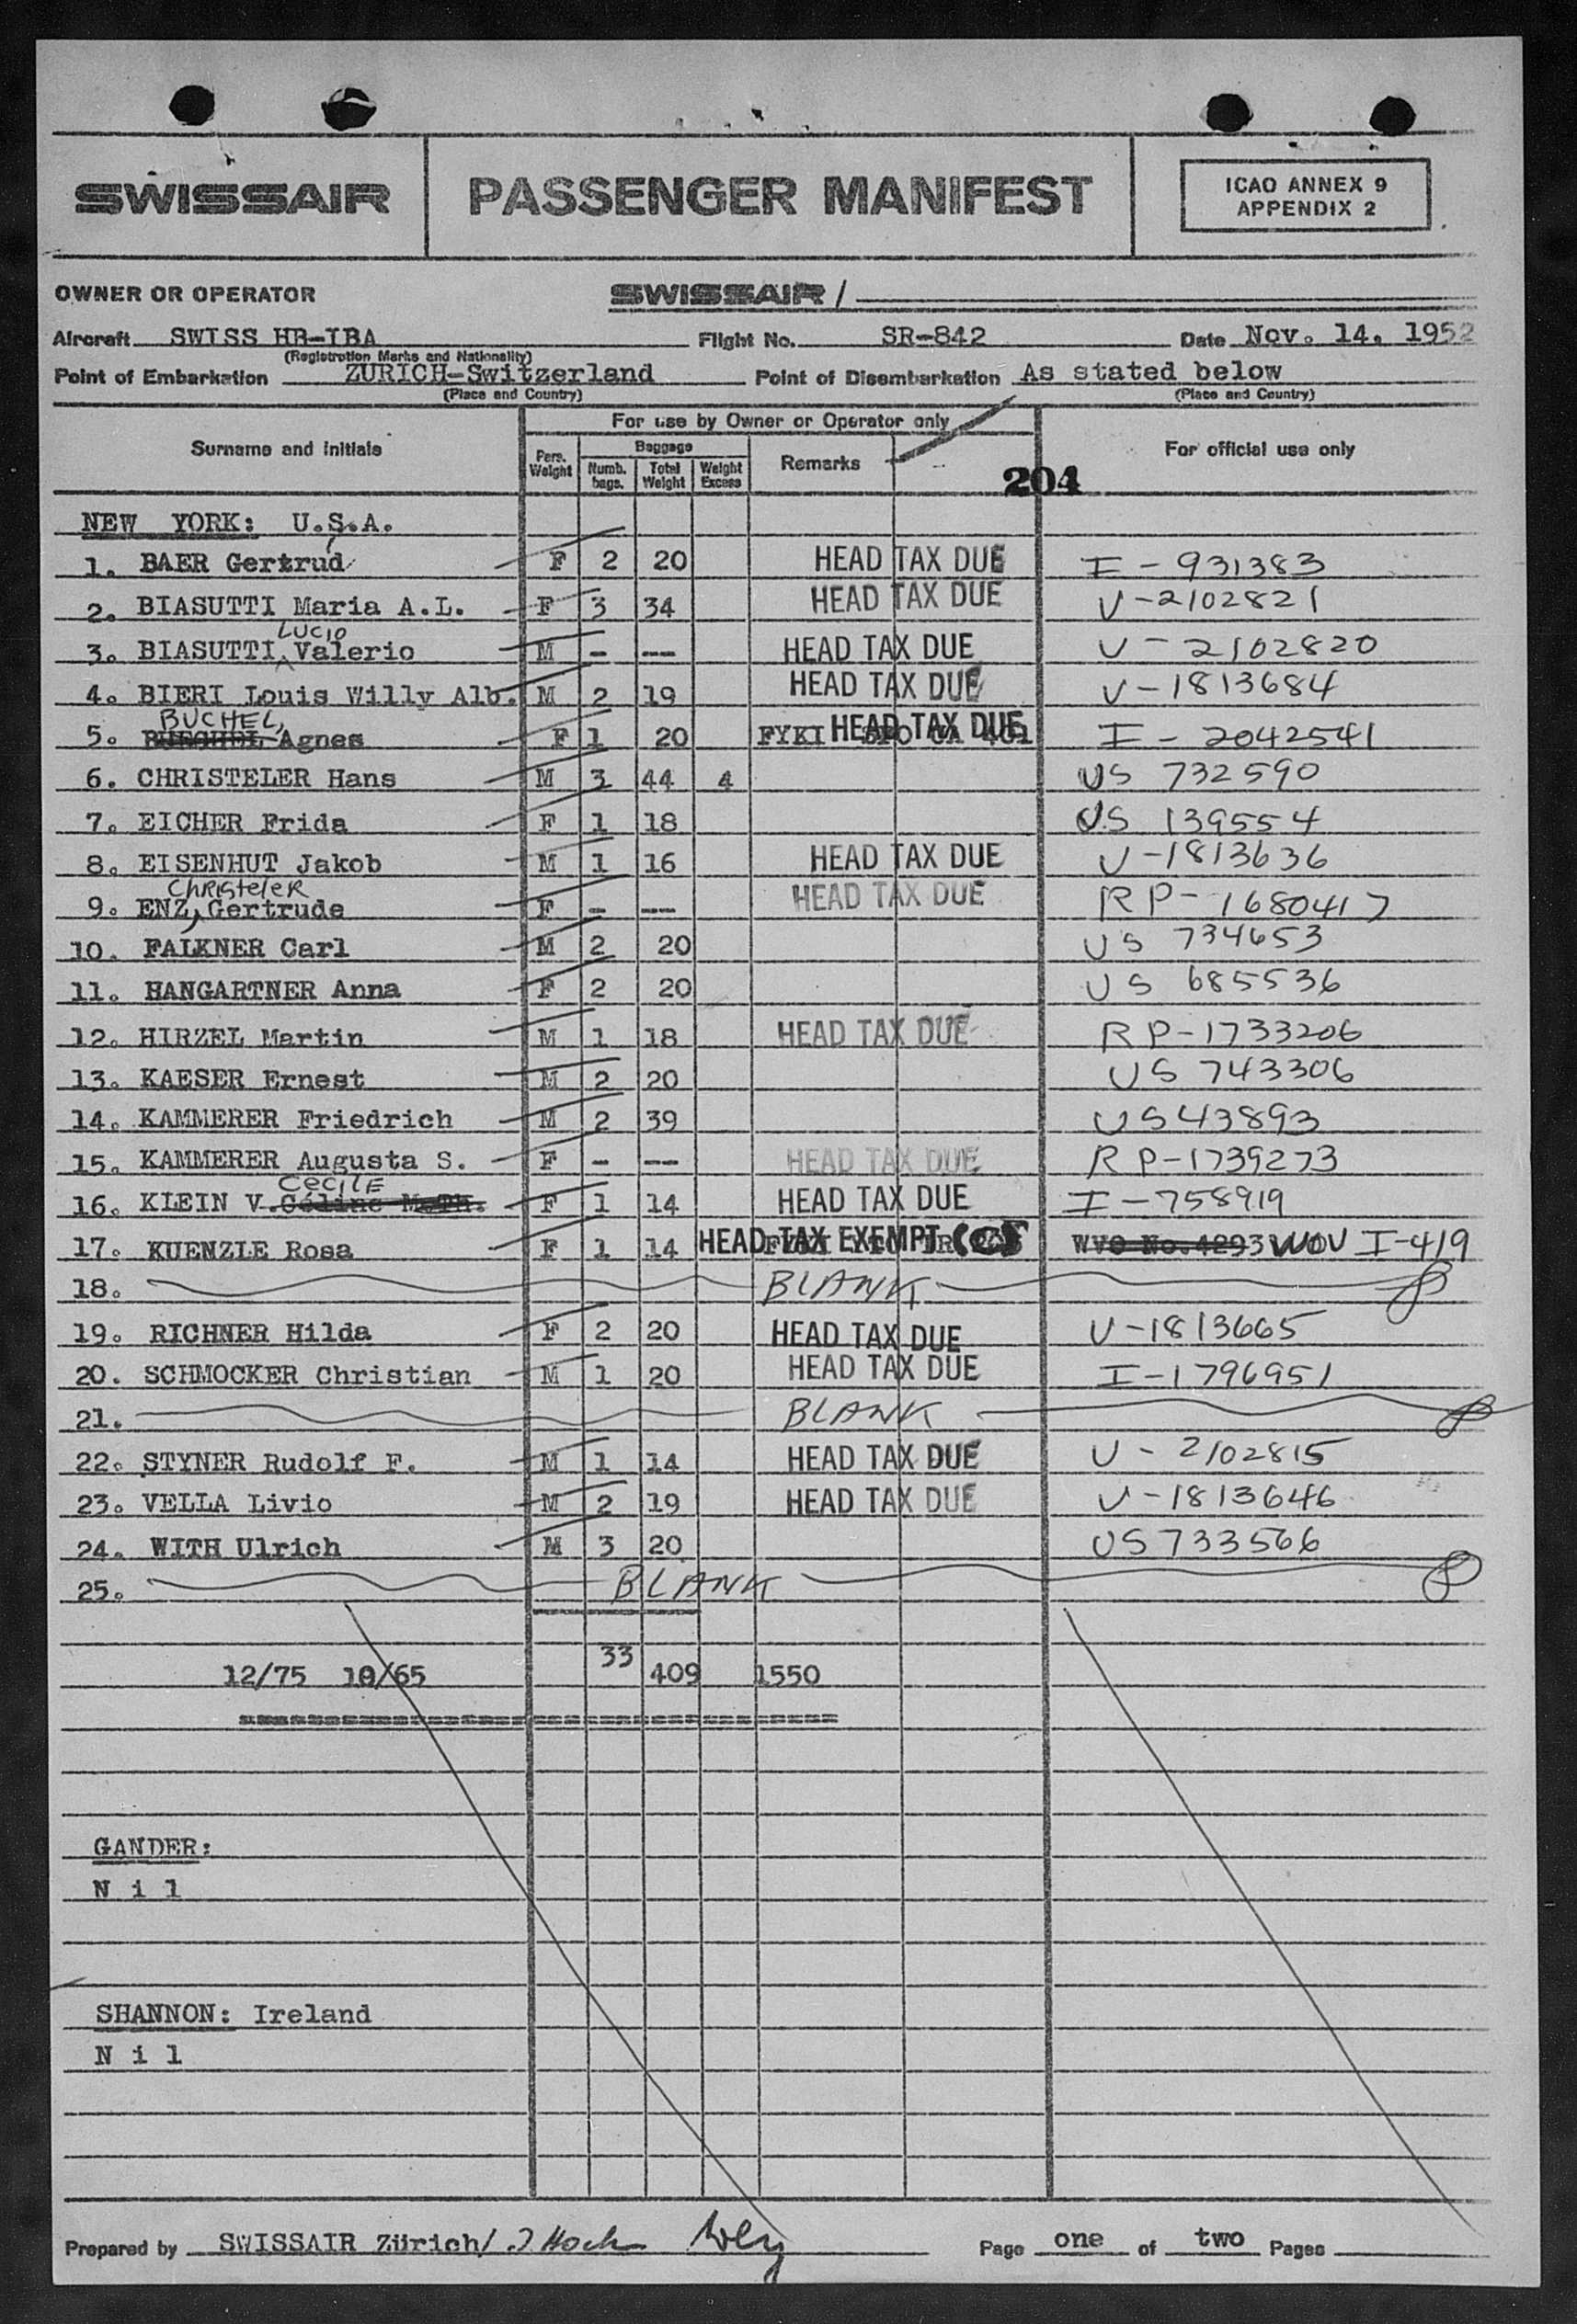 SWISSAIR
PASSENGER MANIFEST
ICAO ANNEX 9
APPENDIX 2
OWNER OR OPERATOR SWISSAIR /
Aircraft SWISS HB-IBA Flight No. SR-842 Date Nov. 14. 1952
(Registration Marks and Nationality)
Point of Embarkation ZURICH-Switzerland Point of Disembarkation As stated below
(Place and Country) (Place and Country)
For use by Owner or Operator only
Surname and Initials Pers. Weight Baggage Numb. bags. Total Weight Weight Excess Remarks For official use only
204
NEW YORK: U.S.A.
1. BAER Gertrud F 2 20 HEAD TAX DUE I-931383
2. BIASUTTI Maria A.L. F 3 34 HEAD TAX DUE V-2102821
LUCIO
3. BIASUTTI, Valerio M - --- HEAD TAX DUE V-2102820
4. BIERI Louis Willy Alb. M 2 19 HEAD TAX DUE V-1813684
BUCHEL,
5. BUECHEL Agnes F 1 20 FYKI HEAD TAX DUE I-2042541
6. CHRISTELER Hans M 3 44 4 US 732590
7. EICHER Frida F 1 18 US 139554
8. EISENHUT Jakob M 1 16 HEAD TAX DUE V-1813636
Christeler
9. ENZ, Gertrude F - --- HEAD TAX DUE RP-1680417
10. FALKNER Carl M 2 20 US 734653
11. HANGARTNER Anna F 2 20 US 685536
12. HIRZEL Martin M 1 18 HEAD TAX DUE RP-1733206
13. KAESER Ernest M 2 20 US 743306
14. KAMMERER Friedrich M 2 39 US43893
15. KAMMERER Augusta S. F - --- HEAD TAX DUE RP-1739273
CECILE
16. KLEIN V. Céline M.Th. F 1 14 HEAD TAX DUE I-758919
17. KUENZLE Rosa F 1 14 HEAD TAX EXEMPT WVO No.4293 WOV I-419
18. BLANK
19. RICHNER Hilda F 2 20 HEAD TAX DUE V-1813665
20. SCHMOCKER Christian M 1 20 HEAD TAX DUE I-1796951
21. BLANK
22. STYNER Rudolf F. M 1 14 HEAD TAX DUE V-2102815
23. VELLA Livio M 2 19 HEAD TAX DUE V-1813646
24. WITH Ulrich M 3 20 US733566
25. BLANK
12/75 10/65 33 409 1550
GANDER:
Nil
SHANNON: Ireland
Nil
Prepared by SWISSAIR Zürich/ J Hoch Page one of two Pages